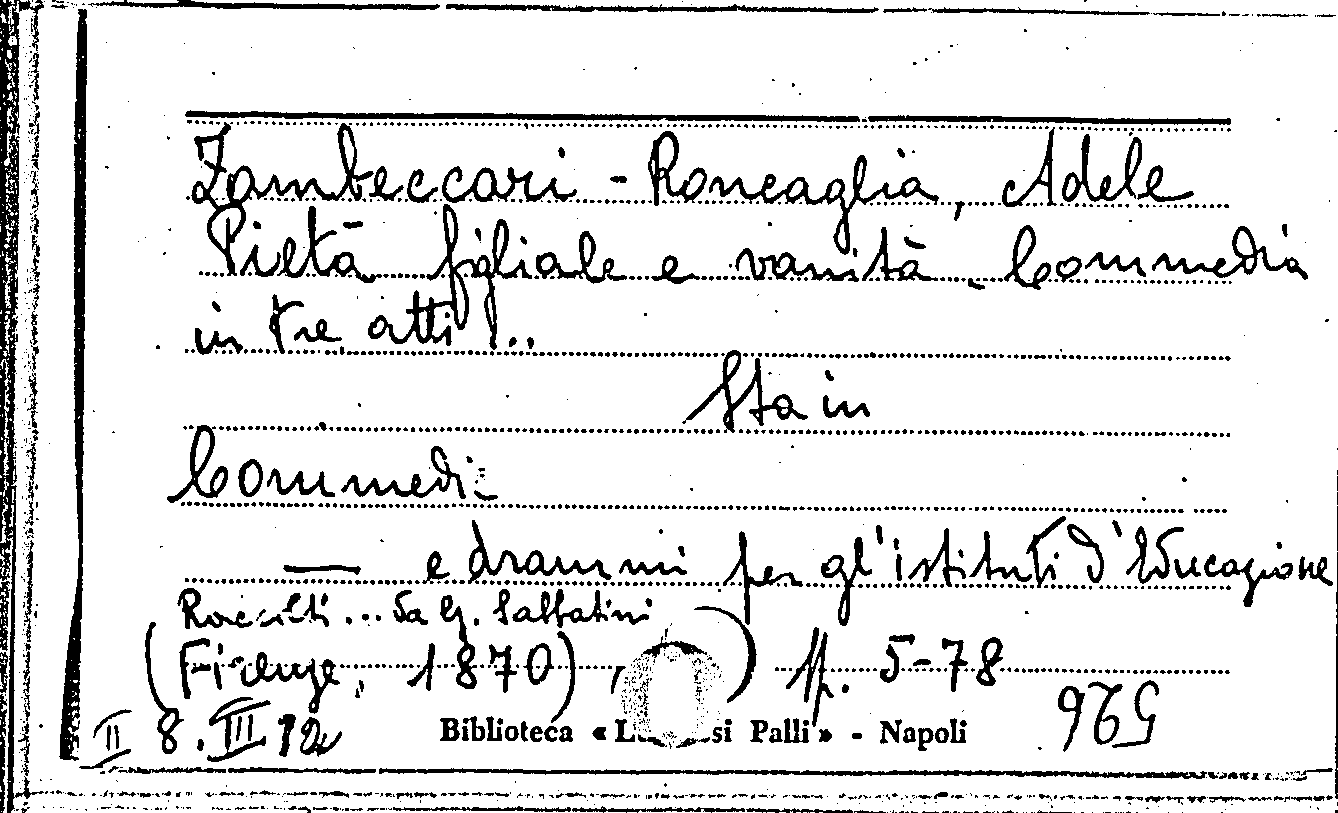 Zambeccari - Roncaglia, Adele
Pietà figliale e vanità. Commedia
in tre atti!..
Sta in
Commedi
— e drammi per gl'istituti d'Educazione
Raccolti... da G. Sabbatini
(Firenze, 1870), ) pp. 5-78
II 8. III 12
Biblioteca « L si Palli » - Napoli
526